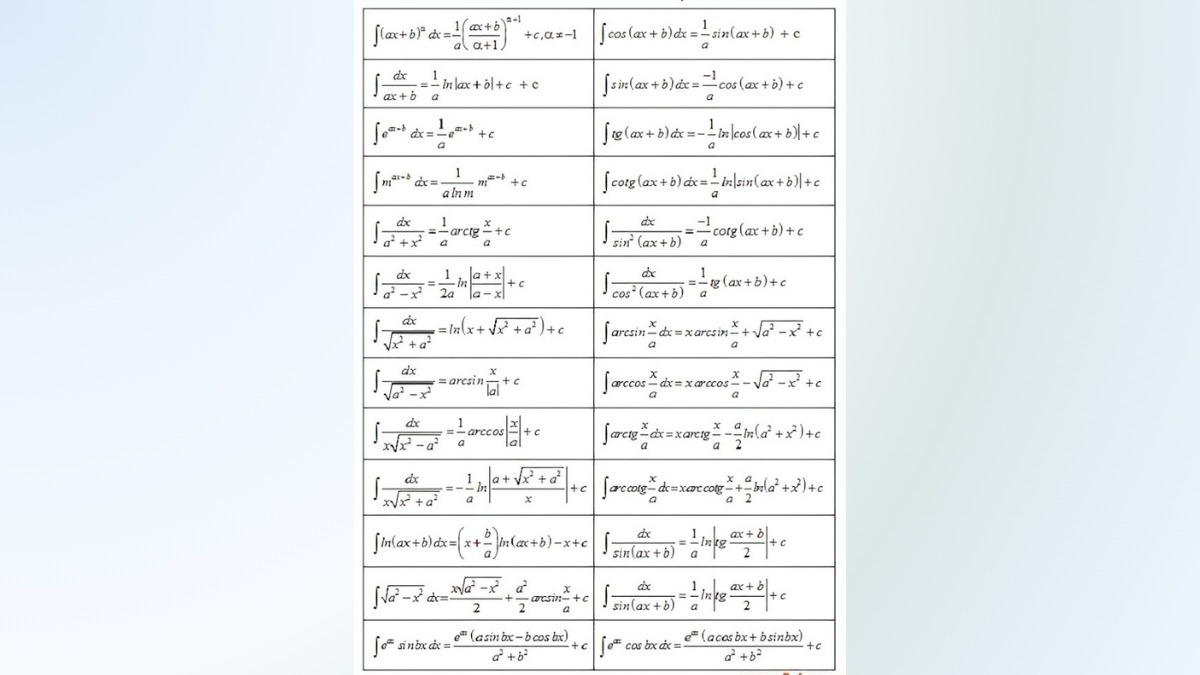 ∫(ax+b)^α dx = 1/a ((ax+b)/(α+1))^(α+1) + c, α ≠ −1
∫cos(ax+b)dx = 1/a sin(ax+b) + c
∫dx/(ax+b) = 1/a ln|ax+b| + c + c
∫sin(ax+b)dx = −1/a cos(ax+b) + c
∫e^(ax+b) dx = 1/a e^(ax+b) + c
∫tg(ax+b)dx = −1/a ln|cos(ax+b)| + c
∫m^(ax+b) dx = 1/(a ln m) m^(ax+b) + c
∫cotg(ax+b)dx = 1/a ln|sin(ax+b)| + c
∫dx/(a²+x²) = 1/a arctg x/a + c
∫dx/(sin²(ax+b)) = −1/a cotg(ax+b) + c
∫dx/(a²−x²) = 1/2a ln|(a+x)/(a−x)| + c
∫dx/(cos²(ax+b)) = 1/a tg(ax+b) + c
∫dx/√(x²+a²) = ln(x+√(x²+a²)) + c
∫arcsin x/a dx = x arcsin x/a + √(a²−x²) + c
∫dx/√(a²−x²) = arcsin x/|a| + c
∫arccos x/a dx = x arccos x/a − √(a²−x²) + c
∫dx/(x√(x²−a²)) = 1/a arccos|x/a| + c
∫arctg x/a dx = x arctg x/a − a/2 ln(a²+x²) + c
∫dx/(x√(x²+a²)) = −1/a ln|(a+√(x²+a²))/x| + c
∫arccotg x/a dx = x arccotg x/a + a/2 ln(a²+x²) + c
∫ln(ax+b)dx = (x+b/a)ln(ax+b) − x + c
∫dx/(sin(ax+b)) = 1/a ln|tg (ax+b)/2| + c
∫√(a²−x²) dx = x√(a²−x²)/2 + a²/2 arcsin x/a + c
∫dx/(sin(ax+b)) = 1/a ln|tg (ax+b)/2| + c
∫e^(ax) sin bx dx = e^(ax)(a sin bx − b cos bx)/(a²+b²) + c
∫e^(ax) cos bx dx = e^(ax)(a cos bx + b sin bx)/(a²+b²) + c